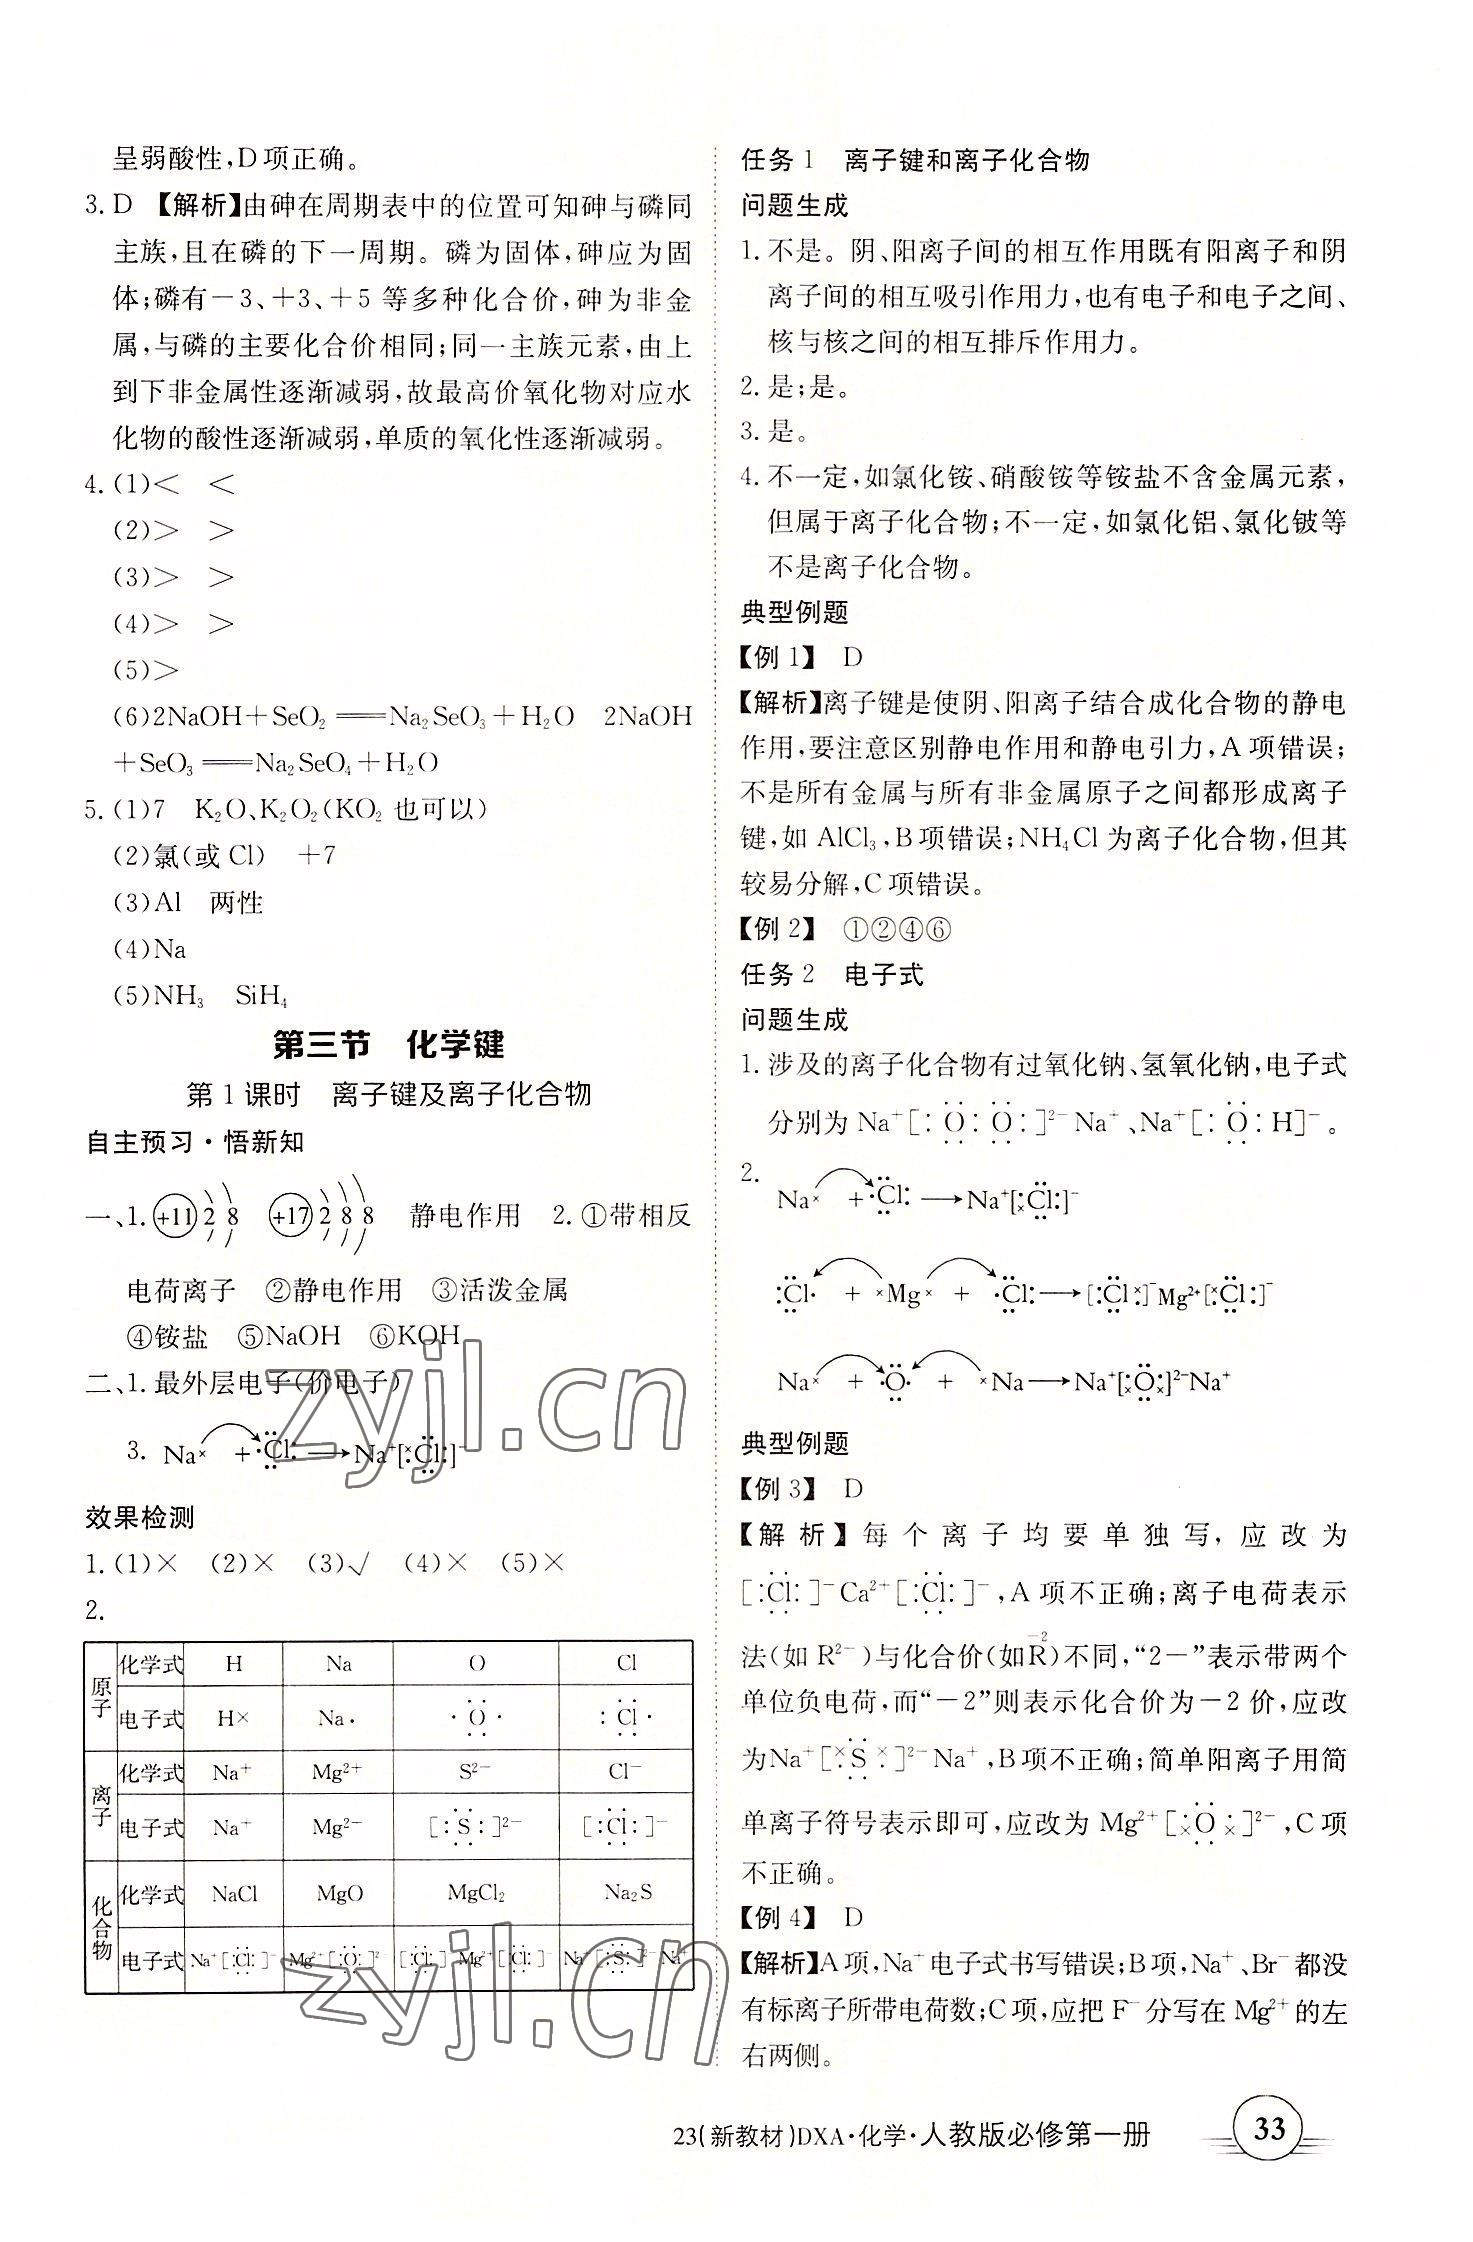 呈弱酸性,D项正确。
3. D 【解析】由砷在周期表中的位置可知砷与磷同
主族,且在磷的下一周期。磷为固体,砷应为固
体;磷有－3、＋3、＋5 等多种化合价,砷为非金
属,与磷的主要化合价相同;同一主族元素,由上
到下非金属性逐渐减弱,故最高价氧化物对应水
化物的酸性逐渐减弱,单质的氧化性逐渐减弱。
4. (1)＜ ＜
(2)＞ ＞
(3)＞ ＞
(4)＞ ＞
(5)＞
(6)2NaOH＋SeO₂══Na₂SeO₃＋H₂O 2NaOH
＋SeO₃══Na₂SeO₄＋H₂O
5. (1)7 K₂O、K₂O₂(KO₂ 也可以)
(2)氯(或 Cl) ＋7
(3)Al 两性
(4)Na
(5)NH₃ SiH₄
第三节 化学键
第 1 课时 离子键及离子化合物
自主预习·悟新知
一、1. +11 2 8 +17 2 8 8 静电作用 2. ①带相反
电荷离子 ②静电作用 ③活泼金属
④铵盐 ⑤NaOH ⑥KOH
二、1. 最外层电子(价电子)
3. Na× + ·Cl: → Na⁺[×Cl:]⁻
效果检测
1. (1)× (2)× (3)√ (4)× (5)×
2.
原子 化学式 H Na O Cl
电子式 H× Na· ·O· :Cl·
离子 化学式 Na⁺ Mg²⁺ S²⁻ Cl⁻
电子式 Na⁺ Mg²⁻ [:S:]²⁻ [:Cl:]⁻
化合物 化学式 NaCl MgO MgCl₂ Na₂S
电子式 Na⁺[:Cl:]⁻ Mg²⁺[:O:]² [:Cl:] Mg²⁺[:Cl:]⁻ Na⁺[:S:]²⁻Na⁺
任务 1 离子键和离子化合物
问题生成
1. 不是。阴、阳离子间的相互作用既有阳离子和阴
离子间的相互吸引作用力,也有电子和电子之间、
核与核之间的相互排斥作用力。
2. 是;是。
3. 是。
4. 不一定,如氯化铵、硝酸铵等铵盐不含金属元素,
但属于离子化合物;不一定,如氯化铝、氯化铍等
不是离子化合物。
典型例题
【例 1】 D
【解析】离子键是使阴、阳离子结合成化合物的静电
作用,要注意区别静电作用和静电引力,A 项错误;
不是所有金属与所有非金属原子之间都形成离子
键,如 AlCl₃,B 项错误;NH₄Cl 为离子化合物,但其
较易分解,C 项错误。
【例 2】 ①②④⑥
任务 2 电子式
问题生成
1. 涉及的离子化合物有过氧化钠、氢氧化钠,电子式
分别为 Na⁺[:O:O:]²⁻Na⁺、Na⁺[:O:H]⁻。
2. Na× + ·Cl: → Na⁺[:×Cl:]⁻
:Cl· + ×Mg× + ·Cl: → [:Cl×]⁻Mg²⁺[×Cl:]⁻
Na× + ·O· + ×Na → Na⁺[×O×]²⁻Na⁺
典型例题
【例 3】 D
【解析】每个离子均要单独写,应改为
[:Cl:]⁻Ca²⁺[:Cl:]⁻,A 项不正确;离子电荷表示
法(如 R²⁻)与化合价(如 R −2)不同,“2－”表示带两个
单位负电荷,而“－2”则表示化合价为－2 价,应改
为Na⁺[×S×]²⁻Na⁺,B 项不正确;简单阳离子用简
单离子符号表示即可,应改为 Mg²⁺[×O×]²⁻,C 项
不正确。
【例 4】 D
【解析】A 项,Na⁺电子式书写错误;B 项,Na⁺、Br⁻都没
有标离子所带电荷数;C 项,应把 F⁻ 分写在 Mg²⁺的左
右两侧。
23(新教材)DXA·化学·人教版必修第一册
33
zyjl.cn
zyjl.cn